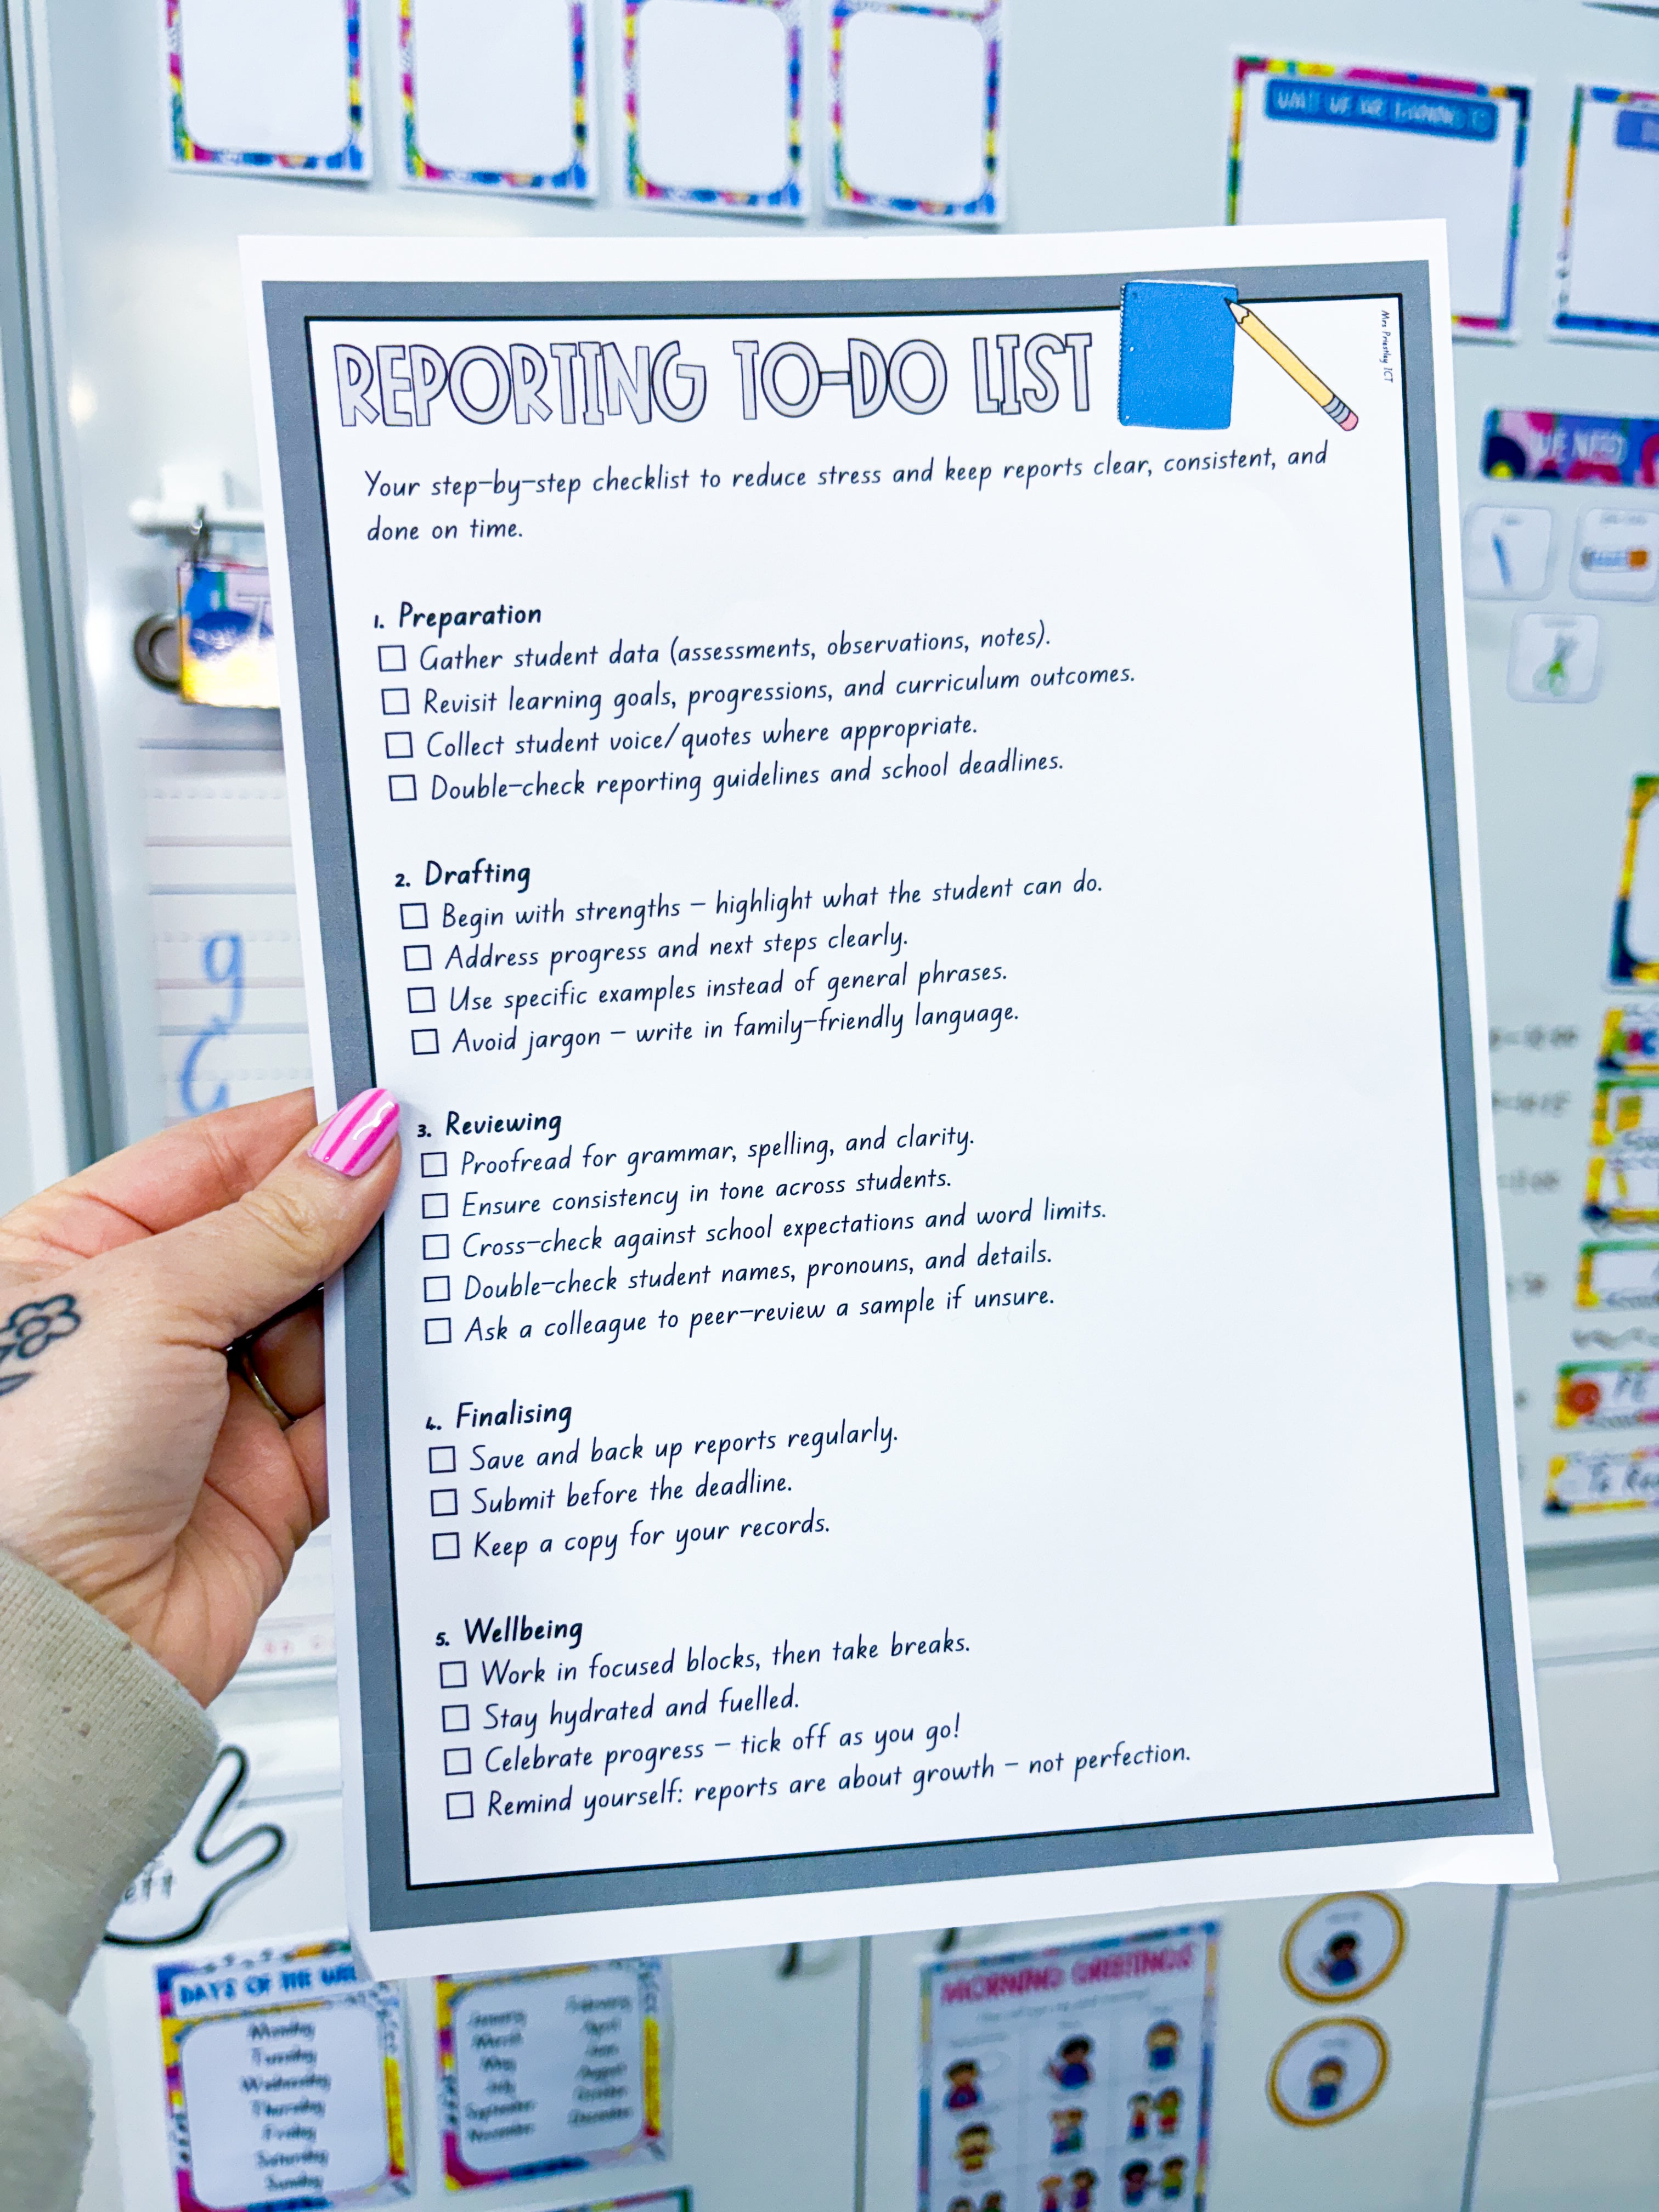 REPORTING TO-DO LIST
Mrs Priestley ICT
Your step-by-step checklist to reduce stress and keep reports clear, consistent, and
done on time.
1. Preparation
Gather student data (assessments, observations, notes).
Revisit learning goals, progressions, and curriculum outcomes.
Collect student voice/quotes where appropriate.
Double-check reporting guidelines and school deadlines.
2. Drafting
Begin with strengths – highlight what the student can do.
Address progress and next steps clearly.
Use specific examples instead of general phrases.
Avoid jargon – write in family-friendly language.
3. Reviewing
Proofread for grammar, spelling, and clarity.
Ensure consistency in tone across students.
Cross-check against school expectations and word limits.
Double-check student names, pronouns, and details.
Ask a colleague to peer-review a sample if unsure.
4. Finalising
Save and back up reports regularly.
Submit before the deadline.
Keep a copy for your records.
5. Wellbeing
Work in focused blocks, then take breaks.
Stay hydrated and fuelled.
Celebrate progress – tick off as you go!
Remind yourself: reports are about growth – not perfection.
WE NEED
g
PE
DAYS OF THE
Monday
Tuesday
Wednesday
Thursday
Friday
Saturday
Sunday
January
February
March
April
May
June
July
August
September
October
November
December
MORNING GREETINGS